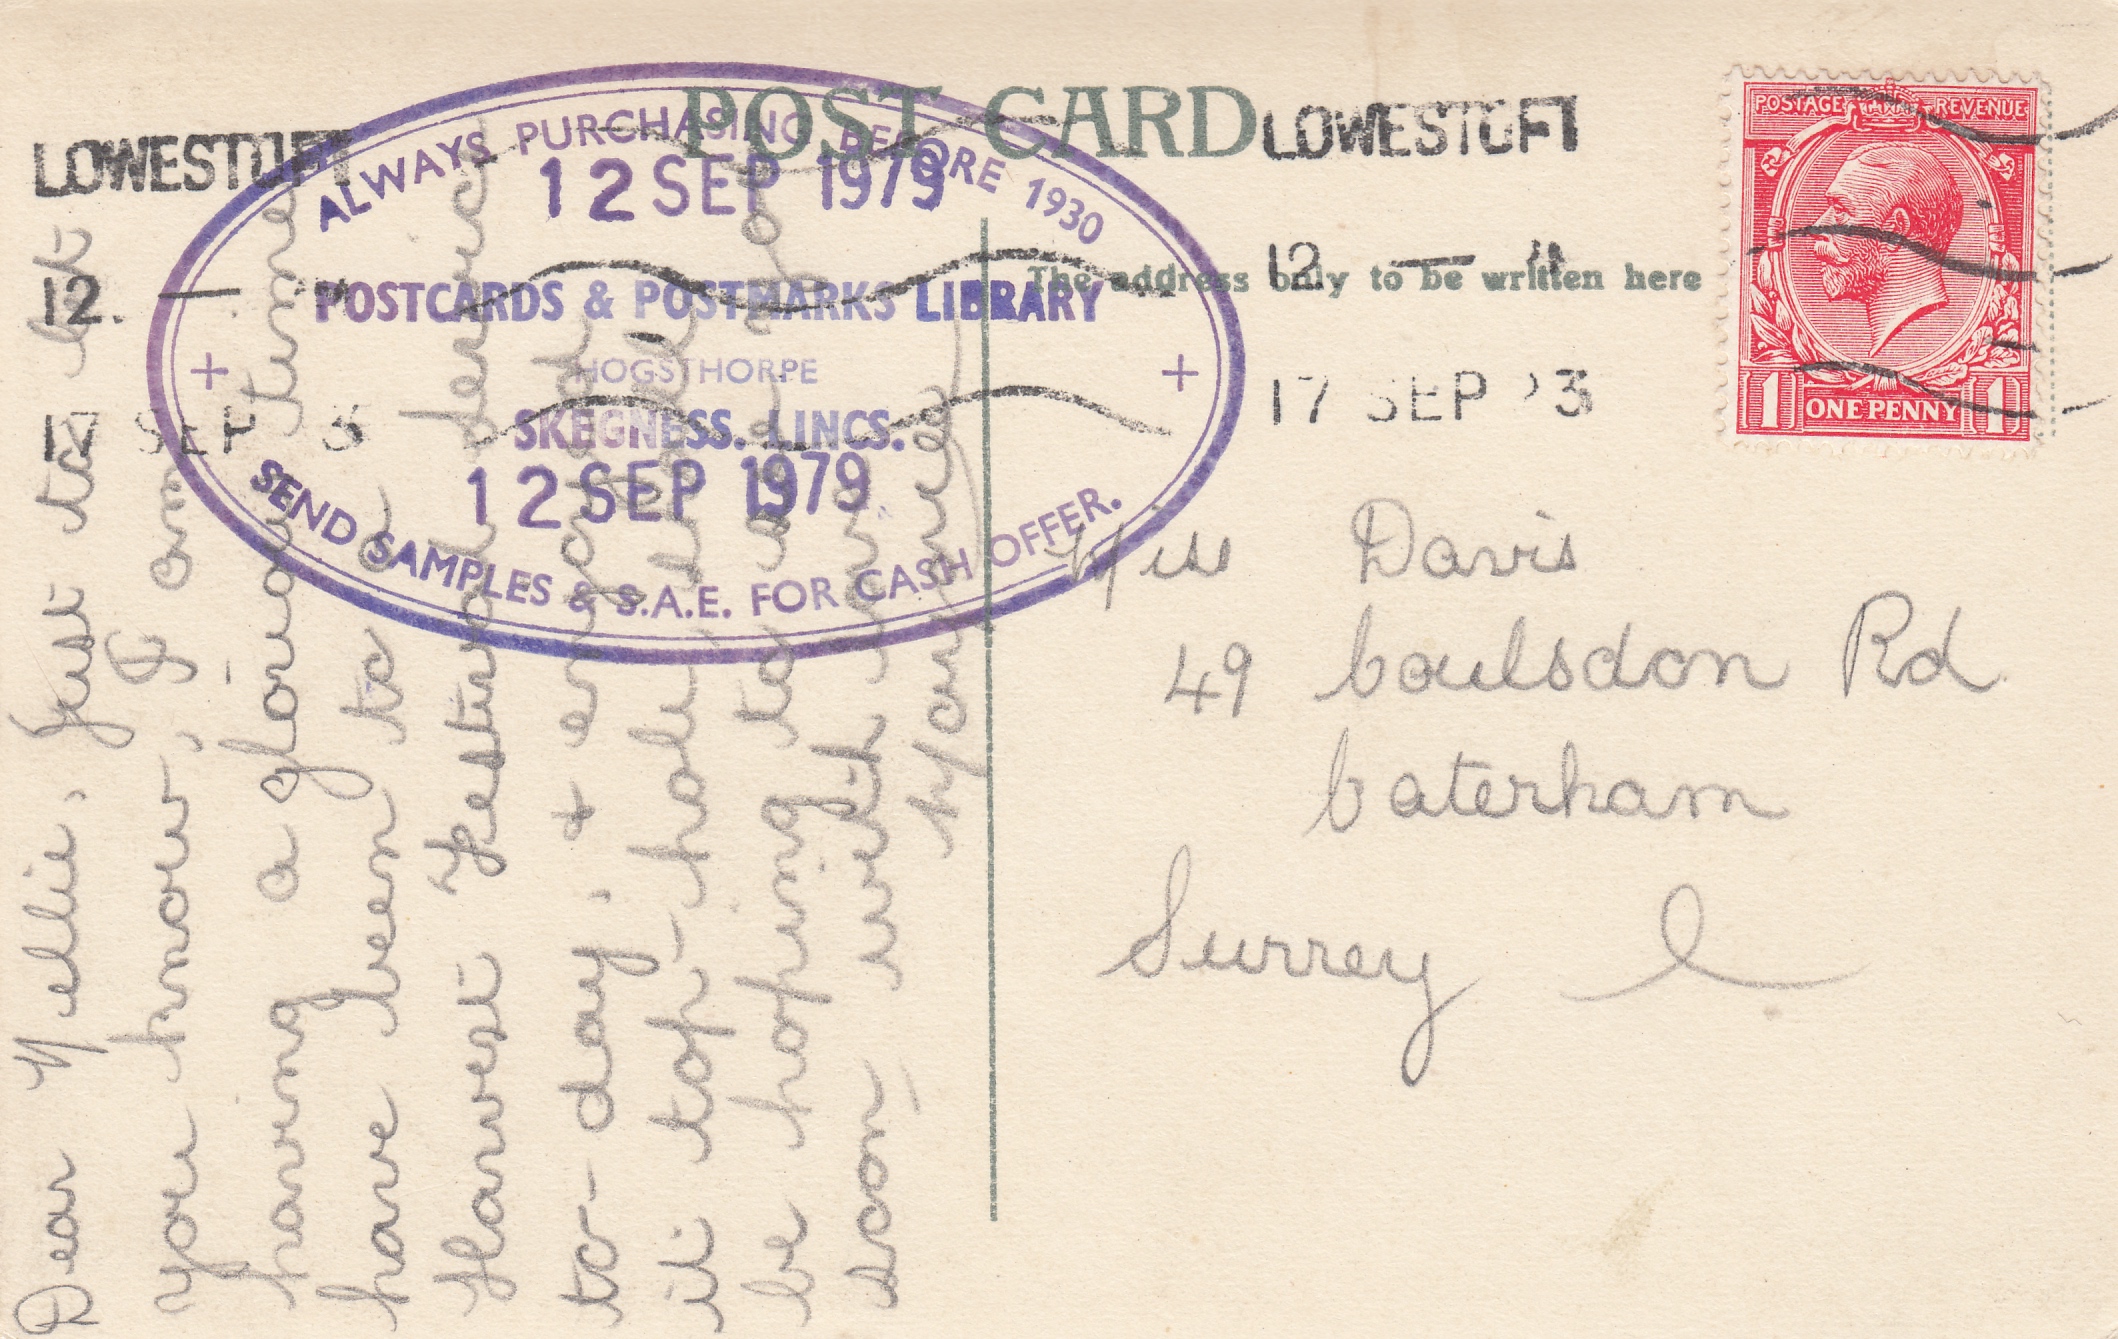 POST CARD
The address only to be written here
LOWESTOFT
12 —
17 SEP 3
LOWESTOFT
12 —
17 SEP 23
POSTAGE REVENUE
1 ONE PENNY 1
ALWAYS PURCHASING BEFORE 1930
12 SEP 1979
POSTCARDS & POSTMARKS LIBRARY
HOGSTHORPE
SKEGNESS. LINCS.
12 SEP 1979
SEND SAMPLES & S.A.E. FOR CASH OFFER.
Dear Nellie, Just to let
you know, I am
having a glorious time
have been to a
Harvest Festival service
to-day, & enjoyed
it top-hole. Shall
be hoping to
soon with
Miss Davis
49 Coulsdon Rd
Caterham
Surrey